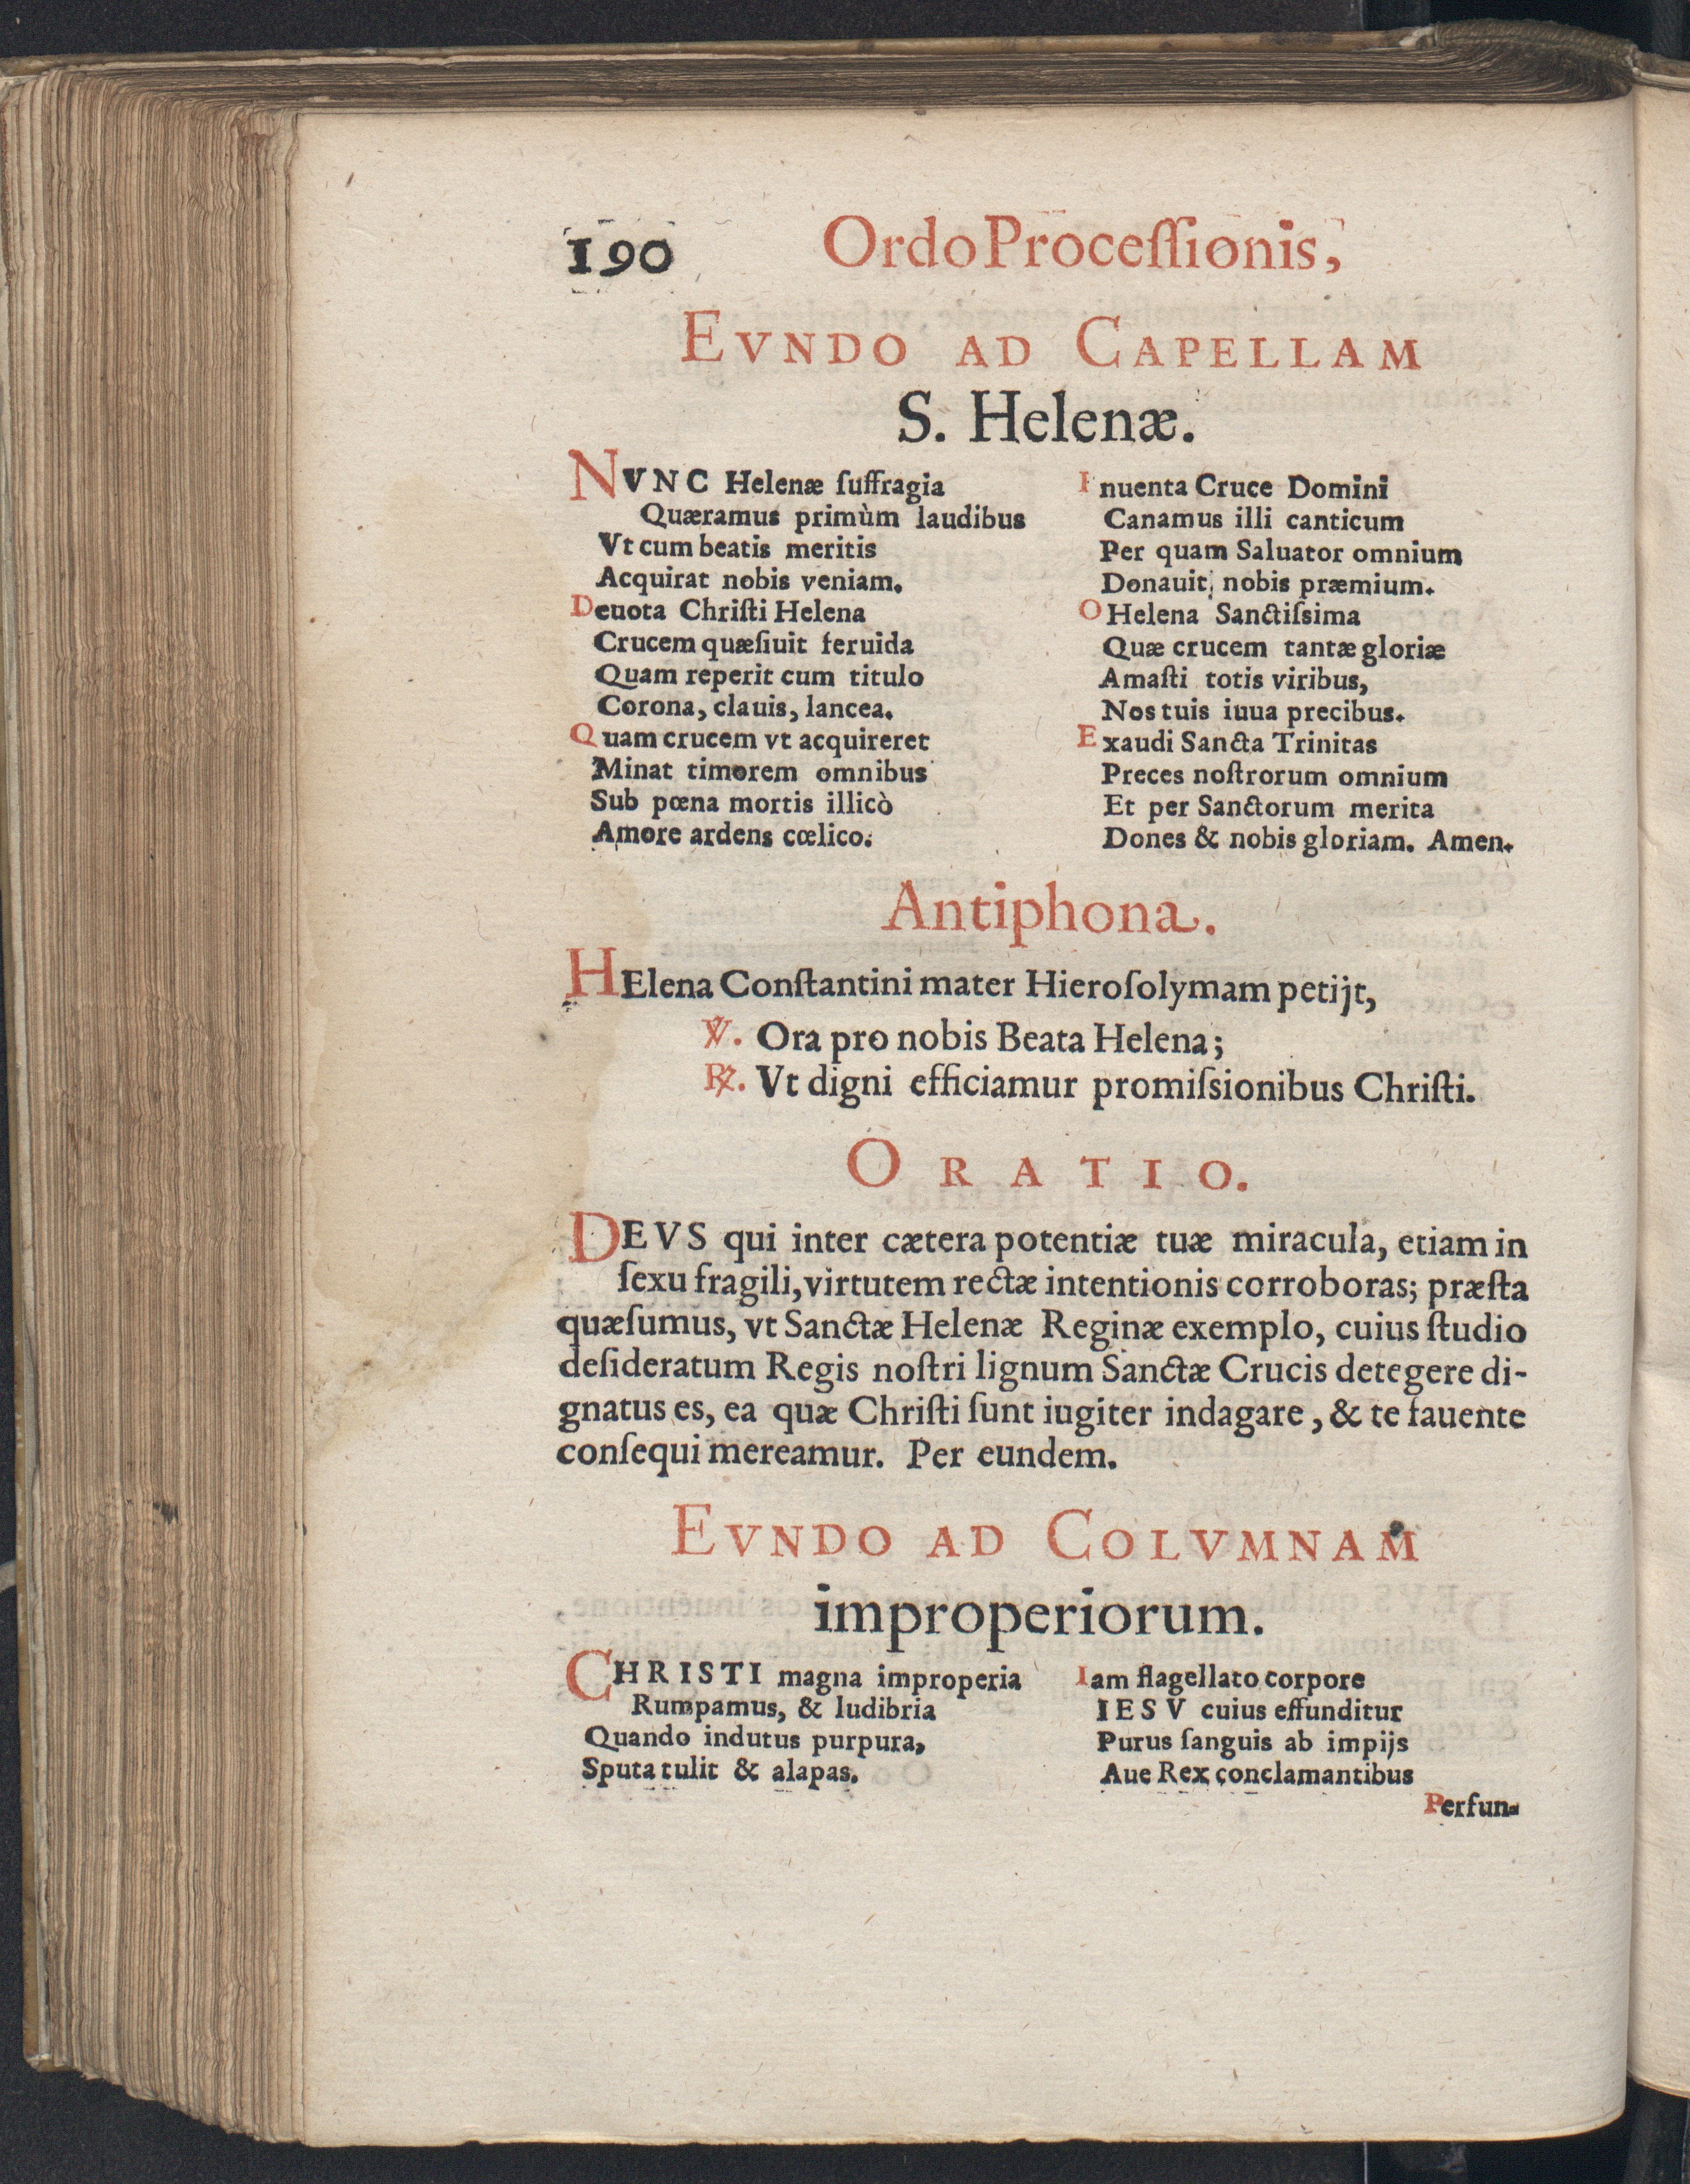 190 Ordo Proceſſionis,
EVNDO AD CAPELLAM
S. Helenæ.
NVNC Helenæ ſuffragia
Quæramus primùm laudibus
Vt cum beatis meritis
Acquirat nobis veniam.
Deuota Chriſti Helena
Crucem quæſiuit feruida
Quam reperit cum titulo
Corona, clauis, lancea.
Quam crucem vt acquireret
Minat timorem omnibus
Sub pœna mortis illicò
Amore ardens cœlico.
Inuenta Cruce Domini
Canamus illi canticum
Per quam Saluator omnium
Donauit nobis præmium.
O Helena Sanctiſsima
Quæ crucem tantæ gloriæ
Amaſti totis viribus,
Nos tuis iuua precibus.
Exaudi Sancta Trinitas
Preces noſtrorum omnium
Et per Sanctorum merita
Dones & nobis gloriam. Amen.
Antiphona.
HElena Conſtantini mater Hieroſolymam petijt,
℣. Ora pro nobis Beata Helena;
℟. Vt digni efficiamur promiſsionibus Chriſti.
ORATIO.
DEVS qui inter cætera potentiæ tuæ miracula, etiam in
ſexu fragili, virtutem rectæ intentionis corroboras; præſta
quæſumus, vt Sanctæ Helenæ Reginæ exemplo, cuius ſtudio
deſideratum Regis noſtri lignum Sanctæ Crucis detegere di-
gnatus es, ea quæ Chriſti ſunt iugiter indagare, & te fauente
conſequi mereamur. Per eundem.
EVNDO AD COLVMNAM
improperiorum.
CHRISTI magna improperia
Rumpamus, & ludibria
Quando indutus purpura,
Sputa tulit & alapas.
Iam flagellato corpore
IESV cuius effunditur
Purus ſanguis ab impijs
Aue Rex conclamantibus
Perfun-